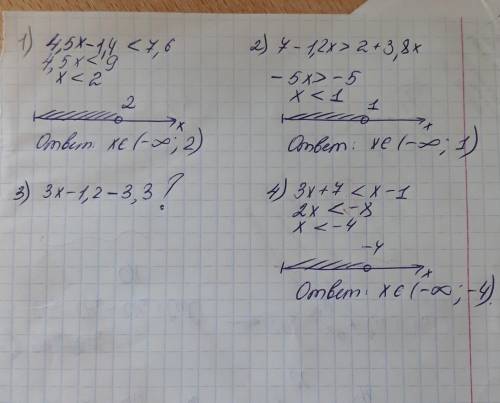 1) 4,5x-1,4 < 7,6
4,5x < 9
x < 2
2
x
Ответ: x∈(-∞; 2)
2) 7-1,2x > 2+3,8x
-5x > -5
x < 1
1
x
Ответ: x∈(-∞; 1)
3) 3x-1,2-3,3 ?
4) 3x+7 < x-1
2x < -8
x < -4
-4
x
Ответ: x∈(-∞; -4)